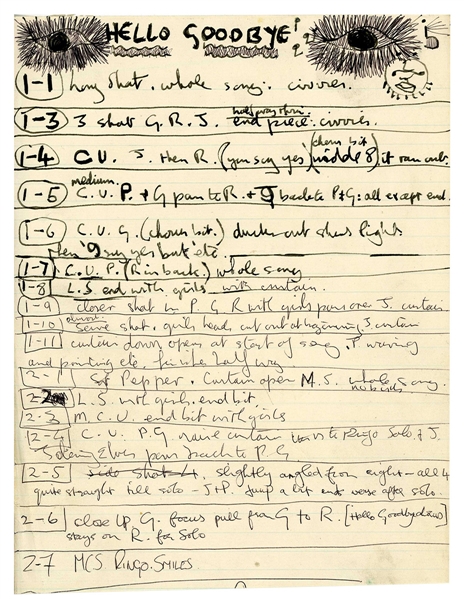 HELLO GOODBYE
1-1 long shot. whole song.
1-3 3 shot G. R. J. end piece.
1-4 C.U. J. then R. (you say yes) (middle 8) it ran out.
medium
1-5 C.U. P. + G pan to R. + J back to P+G: all except end.
1-6 C.U. G. (chorus bit.) lights
then 'I say yes but' etc.
1-7 C.U. P. (R in back) whole song
1-8 L.S end with girls with curtain.
1-9 closer shot P. G R with girls pans over J. curtain
1-10 shot, girls heads cut out at beginning, J. curtain
1-11 curtain down opens at start of song, P waving
and pointing etc. half way
2-1 Sgt Pepper. Curtain open M.S. whole song.
L.S. with girls. end bit.
2-3 M.C.U. end bit with girls
2-4 C.U. P.G. curtain to Ringo Solo & J.
pans back to P G
2-5 side shot, slightly angled from right - all 4
quite straight till solo - J+P. Jump a bit verse after solo.
2-6 close up G. focus pull from G to R. [Hello Goodbye
stays on R. for Solo
2-7 MCS RINGO. SMILES